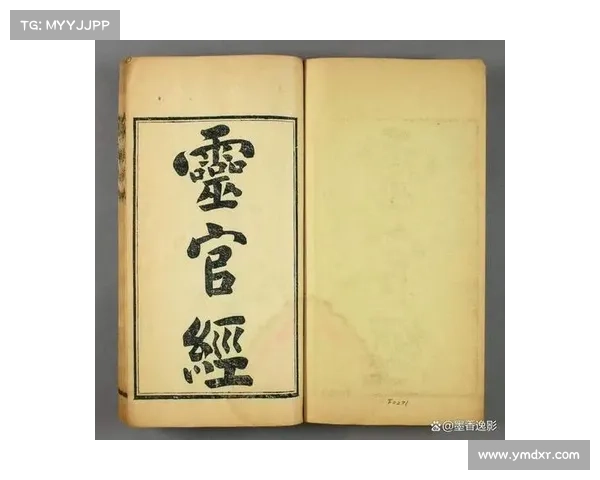 TG: MYYJJPP
靈
官
經
@墨香逸影
www.ymdxr.com